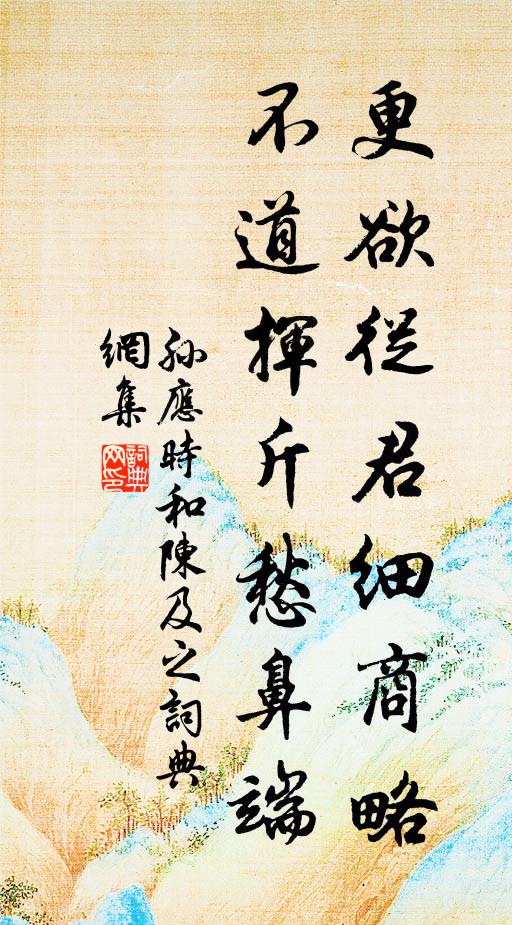 更欲從君細商略
不道揮斤愁鼻端
孙應時和陳及之詞典
網集
詞典
网印